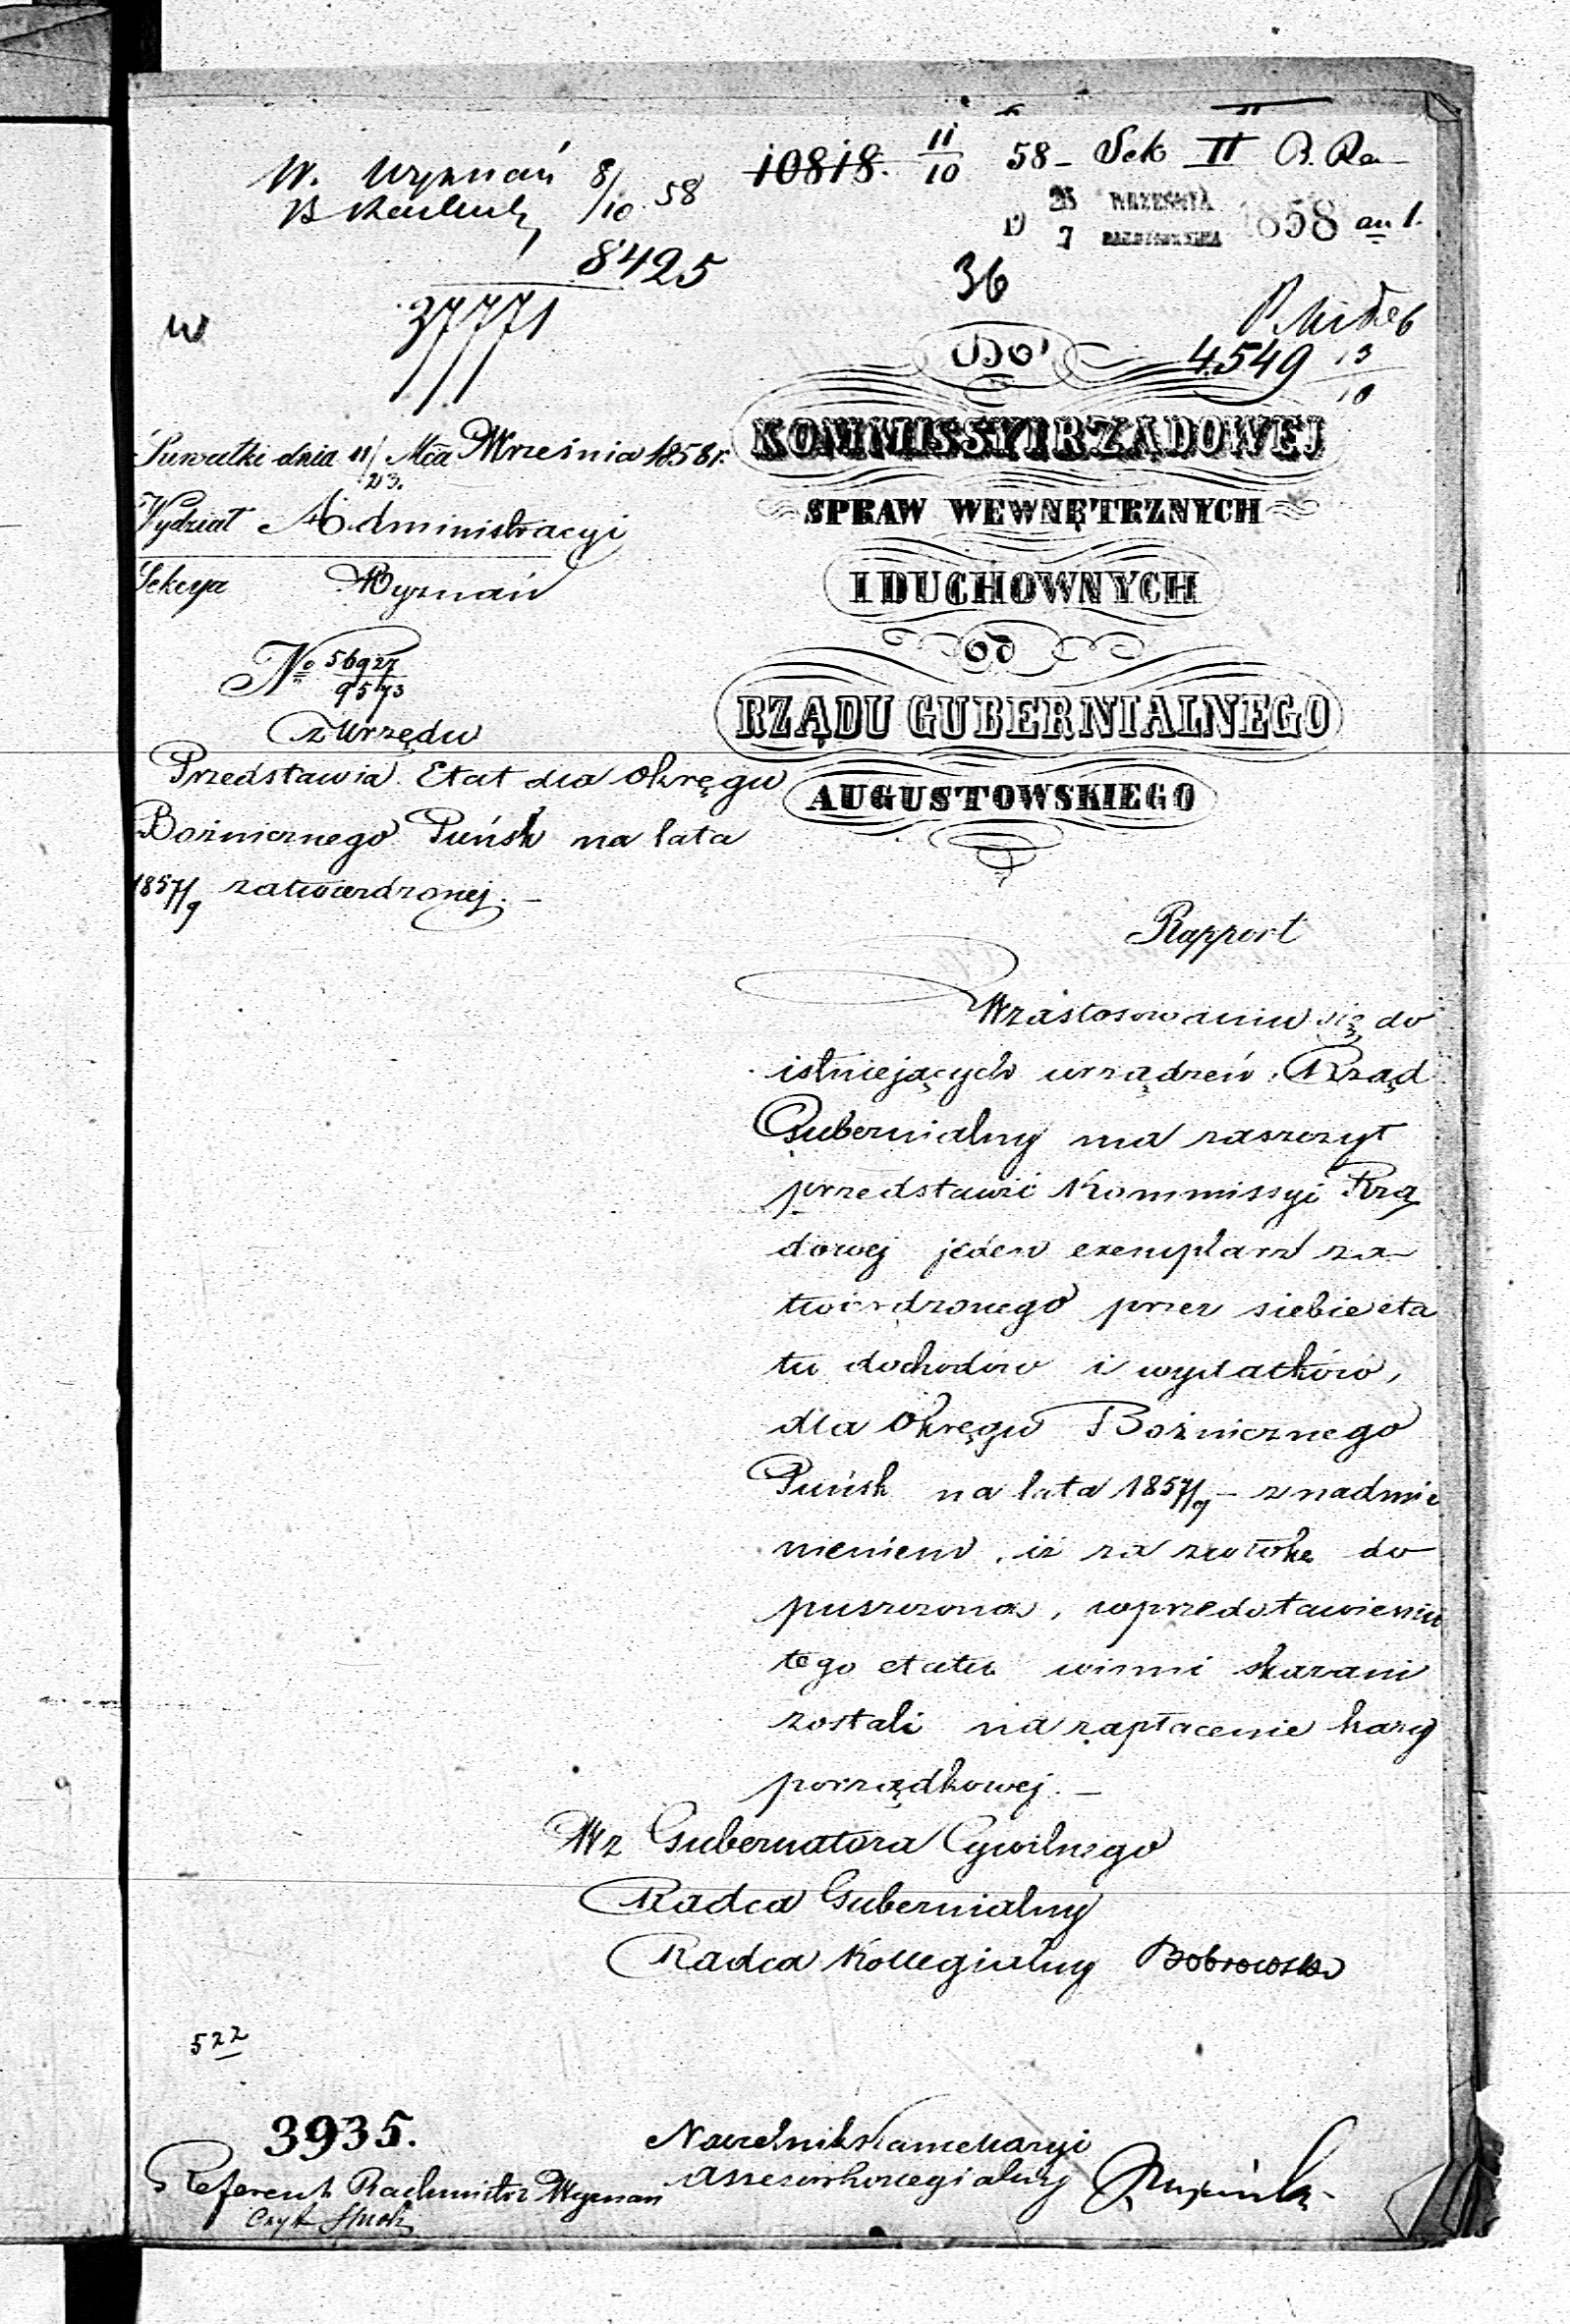 W. Wyznań 8/10 58
8425
37771
10818. 11/10 58 - Sek II
D 25 WRZEŚNIA 1858 an 1.
7 PAZDZIERNIKA
36
4549 13/10
Do
KOMMISSYI RZĄDOWEJ
SPRAW WEWNĘTRZNYCH
I DUCHOWNYCH
od
RZĄDU GUBERNIALNEGO
AUGUSTOWSKIEGO
Suwałki dnia 11/23. Mca Września 1858 r.
Wydział Administracyi
Sekcya Wyznań
No 56927/9573
z Urzędu
Przedstawia Etat dla Okręgu
Bożnicznego Puńsk na lata
1857/9 zatwierdzonej. -
Rapport
W zastosowaniu się do
istniejących urządzeń, Rząd
Gubernialny ma zaszczyt
przedstawić Kommissyi Rzą
dowej jeden exemplarz za-
twierdzonego przez siebie eta
tu dochodów i wydatków,
dla Okręgu Bożnicznego
Puńsk na lata 1857/9 - z nadmie
nieniem, iż za zwłokę do
puszczoną, w przedstawieniu
tego etatu winni skazani
zostali na zapłacenie kary
porządkowej. -
Wz Gubernatora Cywilnego
Radca Gubernialny
Radca Kollegialny Bobrowski
522
3935.
Naczelnik Kancellaryi
Assessor Kollegialny
Referent Rachmistrz Wyznań